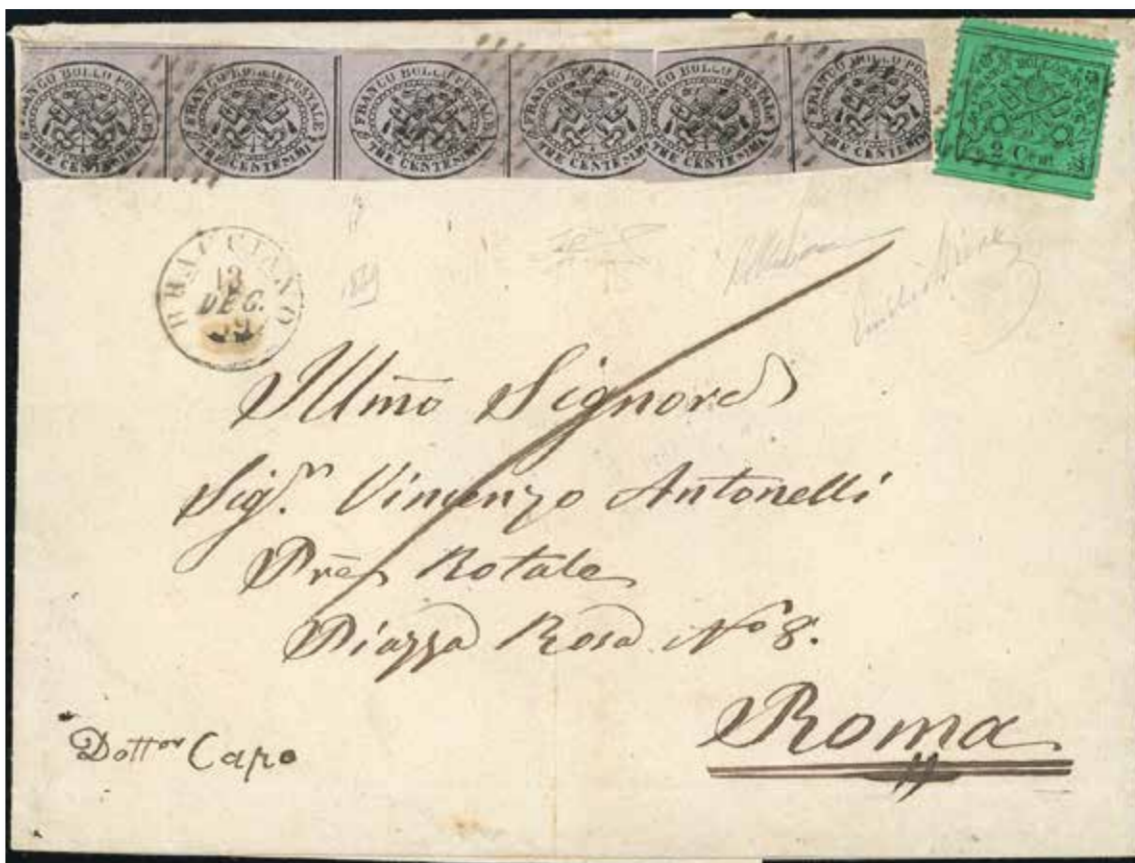 FRANCO BOLLO POSTALE TRE CENTESIMI
FRANCO BOLLO POSTALE TRE CENTESIMI
FRANCO BOLLO POSTALE TRE CENTESIMI
FRANCO BOLLO POSTALE TRE CENTESIMI
FRANCO BOLLO POSTALE TRE CENTESIMI
FRANCO BOLLO POSTALE TRE CENTESIMI
FRANCO BOLLO
2 Cent
BRACCIANO
13
DEC.
69
1869
Illmõ Signore
Sigr. Vincenzo Antonelli
Rotale
Piazza Rosa No 8.
Roma
Dottor Capo